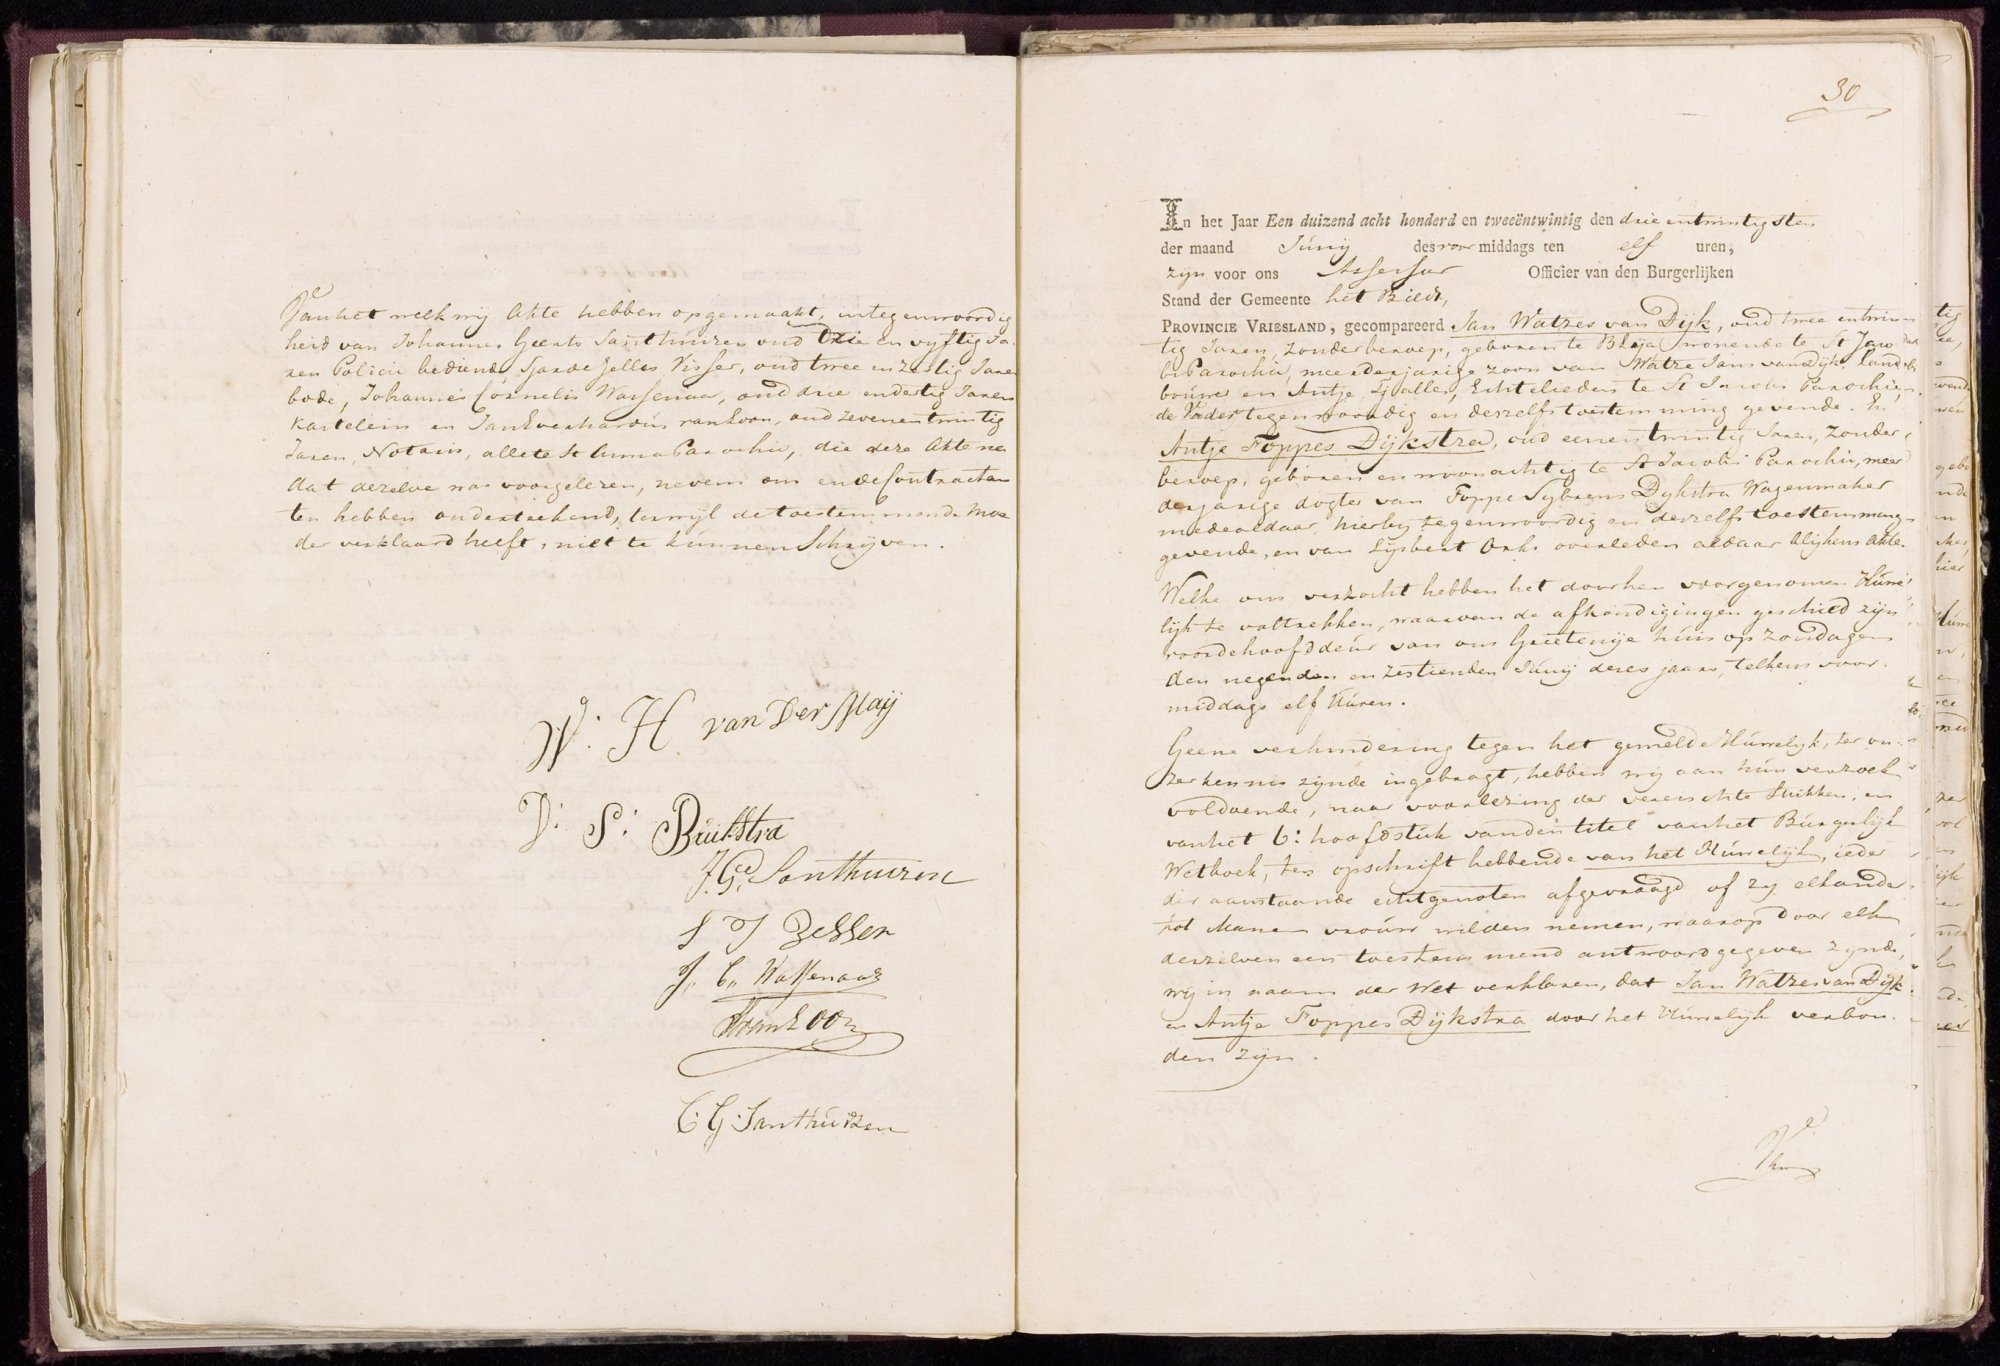 Van het welk wij Akte hebben opgemaakt, in tegenwoordig
heid van Johannes Geerts Santhuizen oud Drie en vyftig Ja
ren Policie bediende, Sjoerd Jelles Visser, oud twee en zestig Jaren
bode, Johannes Cornelis Wassenaar, oud drie en dertig Jaren
Kastelein en Jan Everhardus van Loon, oud zevenentwintig
Jaren, Notaris, alle te St Anna Parochie, die deze Akte na
dat dezelve was voorgelezen, nevens ons en de Contractan
ten hebben onderteekend, terwijl de toestemmende Moe
der verklaard heeft, niet te kunnen Schrijven.
W: H van Der Maij
D: S: Buikstra
J. G. Santhuizen
S J Zesser
J,, C,, Wassenaar
van Loon
C: G: Santhuizen
30
In het Jaar Een duizend acht honderd en tweeëntwintig den drie entwintigsten
der maand Junij des voor middags ten elf uren,
zijn voor ons Assessor Officier van den Burgerlijken
Stand der Gemeente het Bildt,
PROVINCIE VRIESLAND, gecompareerd Jan Watzes van Dijk, oud twee entwin
tig Jaren, Zonder beroep, geboren te Blija wonende te St Jaco
bi Parochie, meerderjarige zoon van Watze Jans van Dijk, Land
bouwer en Antje Tjalles, Echtelieden te St Jacobi Parochie,
de Vader tegenwoordig en deszelfs toestemming gevende. En
Antje Foppes Dijkstra, oud eenentwintig Jaren, Zonder
beroep, geboren en woonachtig te St Jacobi Parochie, meer
derjarige dogter van Foppe Sybrens Dykstra Wagenmaker
mede aldaar, hierby tegenwoordig en deszelfs toestemming
gevende, en van Lijsbert Ones overleden aldaar blijkens Akte.
Welke ons verzocht hebben het door hen voorgenomen Huwe
lijk te voltrekken, waarvan de afkondigingen geschied zijn
voor de hoofddeur van ons Grietenije huis op Zondagen
den negenden en zestienden Junij dezes jaars, telkens voor
middags elf Uuren.
Geene verhindering tegen het gemelde Huwelijk, ter on
zer kennis zijnde ingebragt, hebben wij aan hun verzoek
voldoende, naar voorlezing der vereischte Stukken, en
van het 6: hoofdstuk van den titel van het Burgerlijk
Wetboek, ten opschrift hebbende van het Huwelijk, ieder
der aanstaande echtgenoten afgevraagd of zy elkander
tot Man en vrouw wilden nemen, waarop door elk
derzelven een toestemmend antwoord gegeven zynde,
wij in naam der Wet verklaren, dat Jan Watzes van Dijk
en Antje Foppes Dijkstra door het Huwelijk verbon
den zijn.
Van